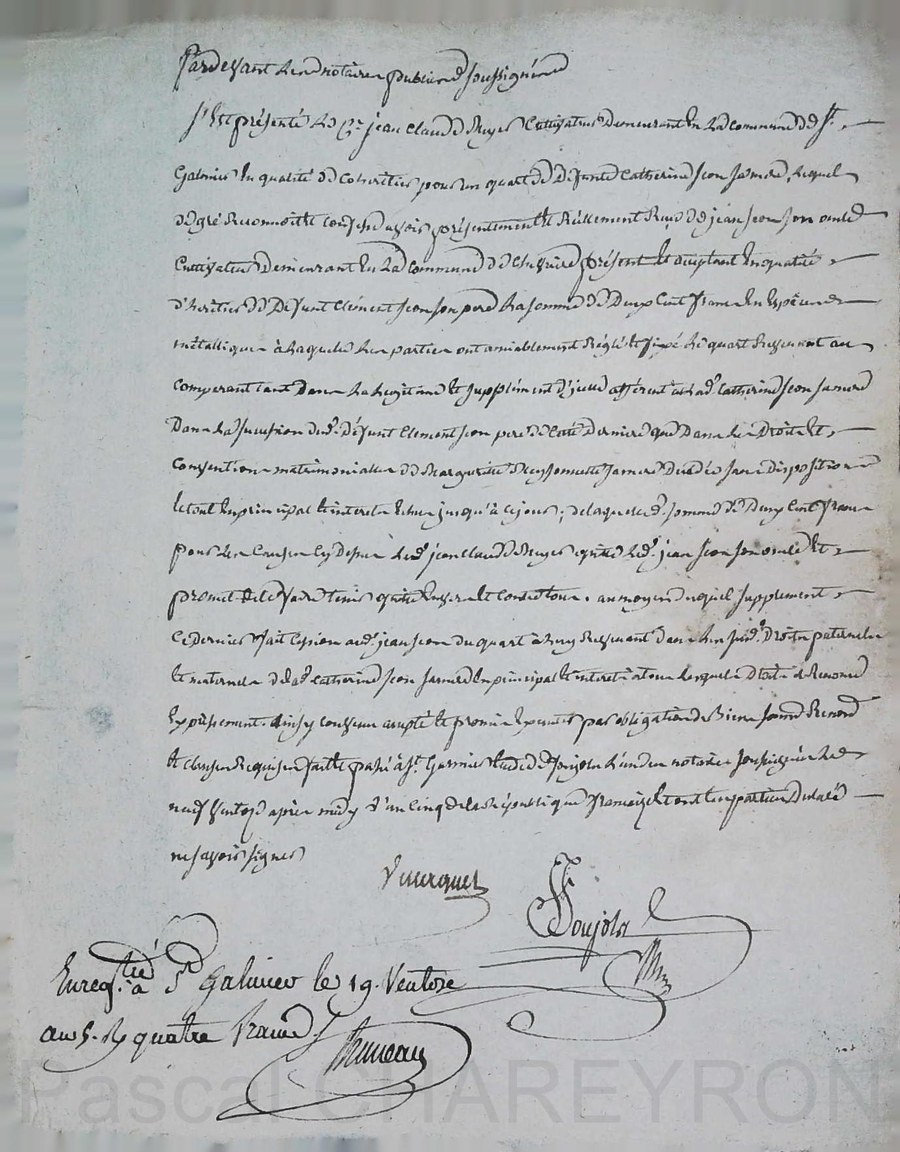 Pardevant les notaires publics soussignés
S'est présenté le Cn. jean claude cultivateur demeurant en la commune de St.
Galmier en qualité de cohéritier pour un quart de Defunte Catherine Jeon sa mere, lequel
de gré reconnoit et confesse avoir présentement et réellement reçu de jean jeon son oncle
cultivateur demeurant en la commune de présent et acceptant en qualité
d'héritier de Defunt Clément jeon son pere la somme de Deux Cent francs en espèces
métallique à laquelle les parties ont amiablement réglé et fixé le quart revenant au
comparant tant dans la légitime et supplément d'icelle afférent a lad. Catherine jeon sa mere
Dans la succession dud. défunt Clement jeon pere de cette derniere que Dans les Droits et
convention matrimoniales de Marguerite sa mere Décédée sans disposition
le tout en principal et interet échus jusqu'à ce jour; de laquelle d. somme de Deux Cent francs
pour les causes cy dessus led. jean claude quitte led. jean jeon son oncle et
promet de le faire tenir quitte envers et contre tous. au moyen duquel supplement
ce dernier fait cession aud. jean jeon du quart à luy revenant dans les susd. Droits paternels
et maternels de lad. Catherine jeon sa mere en principal et interet à tous lesquels Droits il renonce
expressement. ainsy convenu accepté et promis executer par obligation de Biens soumis renoncé
et clauses requises fait et passé à St. Galmier étude de Soujola l'un des notaires soussignés le
neuf Ventose après midy l'an cinq de la république française et ont les parties déclaré
ne savoir signer
Soujola
Enregtré. à St Galmier le 19. Ventose
an 5. R quatre francs
Bruneau
Pascal CHAREYRON